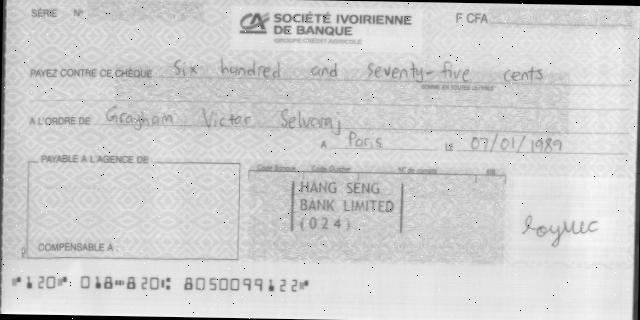 SÉRIE N°
CA SOCIÉTÉ IVOIRIENNE
DE BANQUE
GROUPE CRÉDIT AGRICOLE
F CFA
PAYEZ CONTRE CE CHÈQUE Six hundred and seventy-five cents
SOMME EN TOUTES LETTRES
A L'ORDRE DE Gragham Victor Selvaraj
A Paris LE 07/01/1989
PAYABLE A L'AGENCE DE
Code Banque Code Guichet N° de compte RIB
HANG SENG
BANK LIMITED
(024)
COMPENSABLE A :
⑈120⑈ 018⑉820⑆ 8050099122⑈